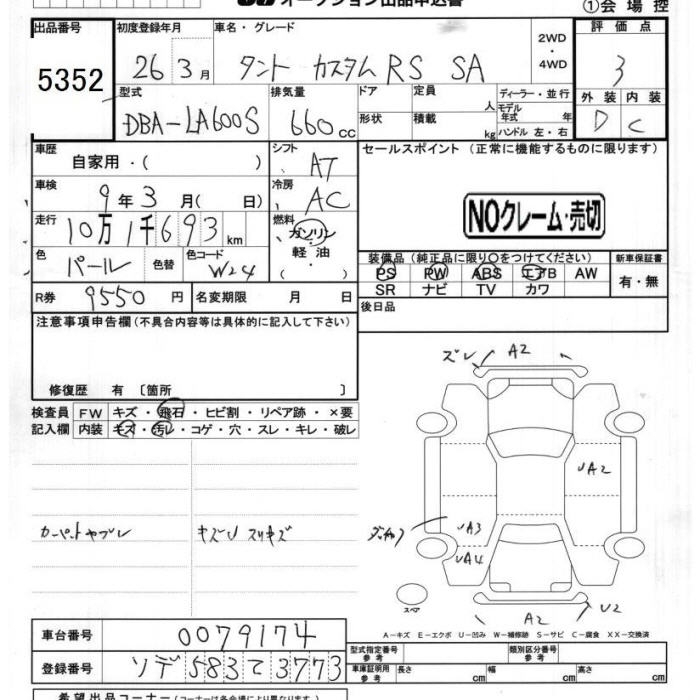 オークション出品申込書
①会場控
出品番号 5352
初度登録年月 26 3月
車名・グレード タント カスタム RS SA
2WD・4WD
評価点 3
外装 D 内装 C
型式 DBA-LA600S
排気量 660cc
ドア 形状
定員 人
積載 kg
ディーラー・並行
モデル年式 年
ハンドル 左・右
車歴 自家用・( )
シフト AT
車検 9年3月( 日)
冷房 AC
走行 10万1千693km
燃料 ガソリン・軽油・( )
色 パール 色替
色コード W24
R券 9550円
名変期限 月 日
セールスポイント (正常に機能するものに限ります)
NOクレーム・売切
装備品(純正品に限り○をつけてください)
新車保証書 有・無
PS PW ABS エアB AW
SR ナビ TV カワ
後日品
注意事項申告欄(不具合内容等は具体的に記入して下さい)
修復歴 有〔箇所 〕
検査員記入欄
FW キズ・飛石・ヒビ割・リペア跡・×要
内装 キズ・汚レ・コゲ・穴・スレ・キレ・破レ
カーペットヤブレ
キズU スリキズ
ズレ A2
UA2
UA3
UA4
スペア
A2 U2
A－キズ E－エクボ U－凹み W－補修跡 S－サビ C－腐食 XX－交換済
車台番号 0079174
登録番号 ソデ583て3773
型式指定番号 参考
類別区分番号 参考
車庫証明用 参考 長さ cm 幅 cm 高さ cm
希望出品コーナー(コーナーは各会場により異なります)